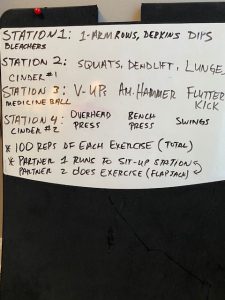 STATION 1: 1-ARM ROWS, DERKINS DIPS
BLEACHERS
STATION 2: SQUATS, DEADLIFT, LUNGE
CINDER #1
STATION 3: V-UPS AM. HAMMER FLUTTER KICK
MEDICINE BALL
STATION 4: OVERHEAD PRESS BENCH PRESS SWINGS
CINDER #2
* 100 REPS OF EACH EXERCISE (TOTAL)
* PARTNER 1 RUNS TO SIT-UP STATION
PARTNER 2 DOES EXERCISE (FLAPJACK)